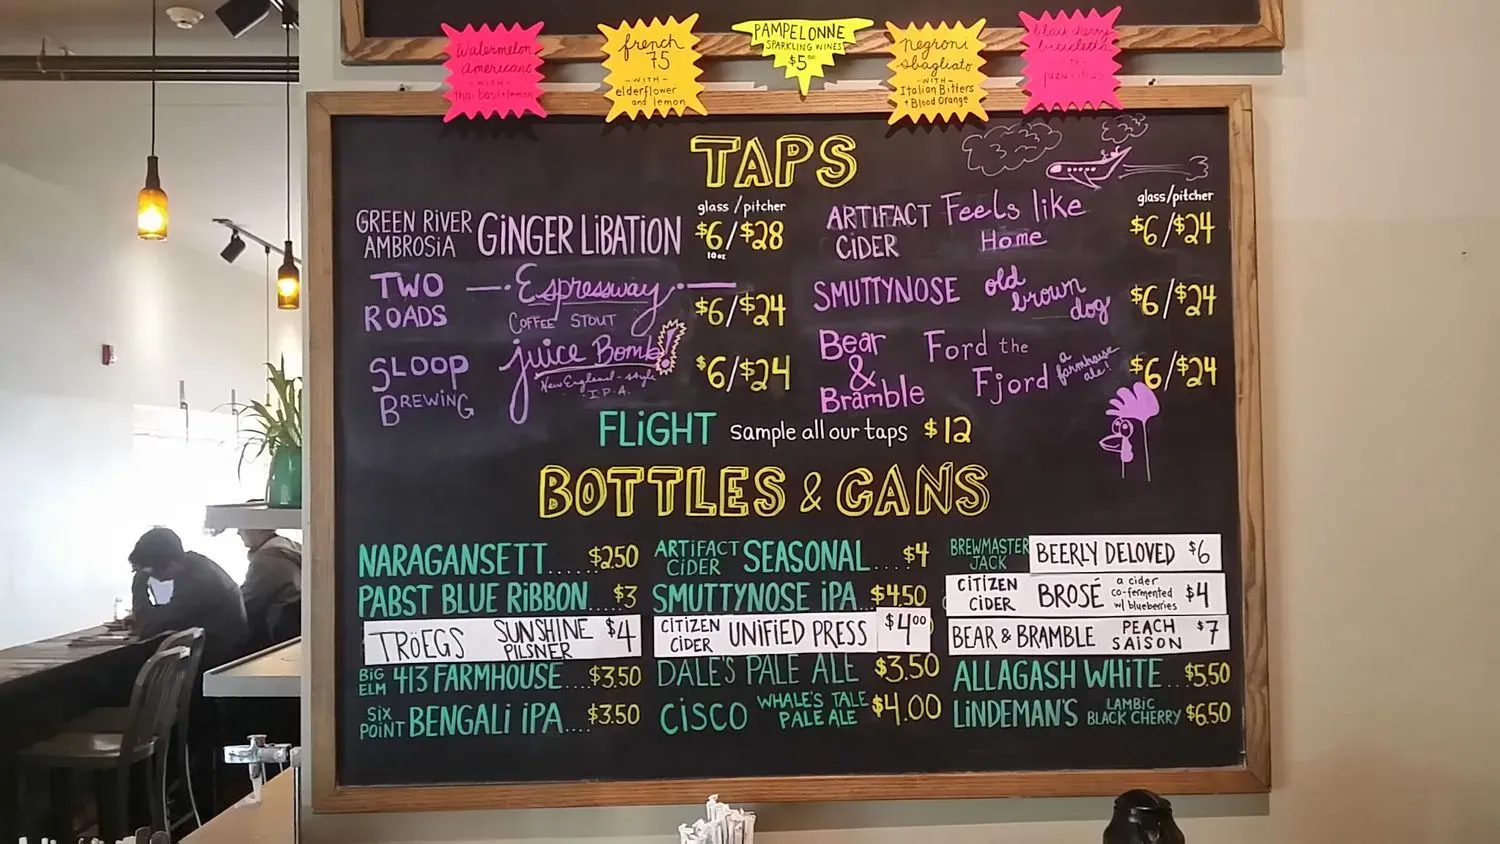 Watermelon
Americano
-WITH-
thai basil + lemon
french
75
-WITH-
elderflower
and lemon
PAMPELONNE
SPARKLING WINES
$5⁰⁰
negroni
sbagliato
-WITH-
Italian Bitters
+ Blood Orange
black cherry
bicicletta
yuzu citrus
TAPS
glass/pitcher
GREEN RIVER AMBROSIA GINGER LIBATION $6/$28
10oz
TWO ROADS Espressway $6/$24
COFFEE STOUT
SLOOP BREWING juice Bomb! $6/$24
New England-style
I.P.A.
glass/pitcher
ARTIFACT CIDER Feels like Home $6/$24
SMUTTYNOSE old brown dog $6/$24
Bear & Bramble Ford the Fjord a farmhouse ale! $6/$24
FLIGHT sample all our taps $12
BOTTLES & CANS
NARAGANSETT...... $2.50
PABST BLUE RIBBON... $3
TRÖEGS SUNSHINE PILSNER $4
BIG ELM 413 FARMHOUSE.... $3.50
SIX POINT BENGALI IPA.... $3.50
ARTIFACT CIDER SEASONAL.... $4
SMUTTYNOSE IPA... $4.50
CITIZEN CIDER UNIFIED PRESS $4⁰⁰
DALE'S PALE ALE $3.50
CISCO WHALE'S TALE PALE ALE $4.00
BREWMASTER JACK BEERLY DELOVED $6
CITIZEN CIDER BROSÉ a cider co-fermented w/ blueberries $4
BEAR & BRAMBLE PEACH SAISON $7
ALLAGASH WHITE... $5.50
LINDEMAN'S LAMBIC BLACK CHERRY $6.50